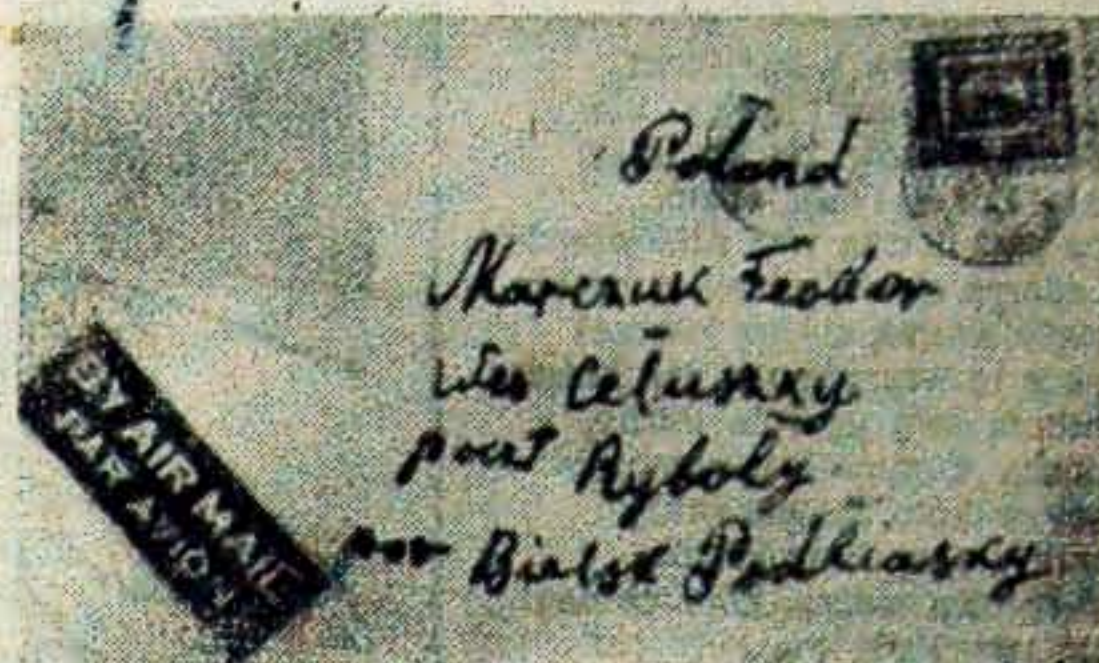 Poland
Marczuk Feodor
wies Celuszky
poczt Ryboly
pow Bielsk Podliasky
BY AIR MAIL
PAR AVION